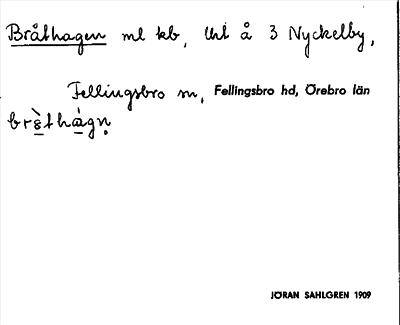 Bråthagen ml kb, Uvt å 3 Nyckelby,
Fellingsbro sn, Fellingsbro hd, Örebro län
brè̱thà̱gṇ
JÖRAN SAHLGREN 1909